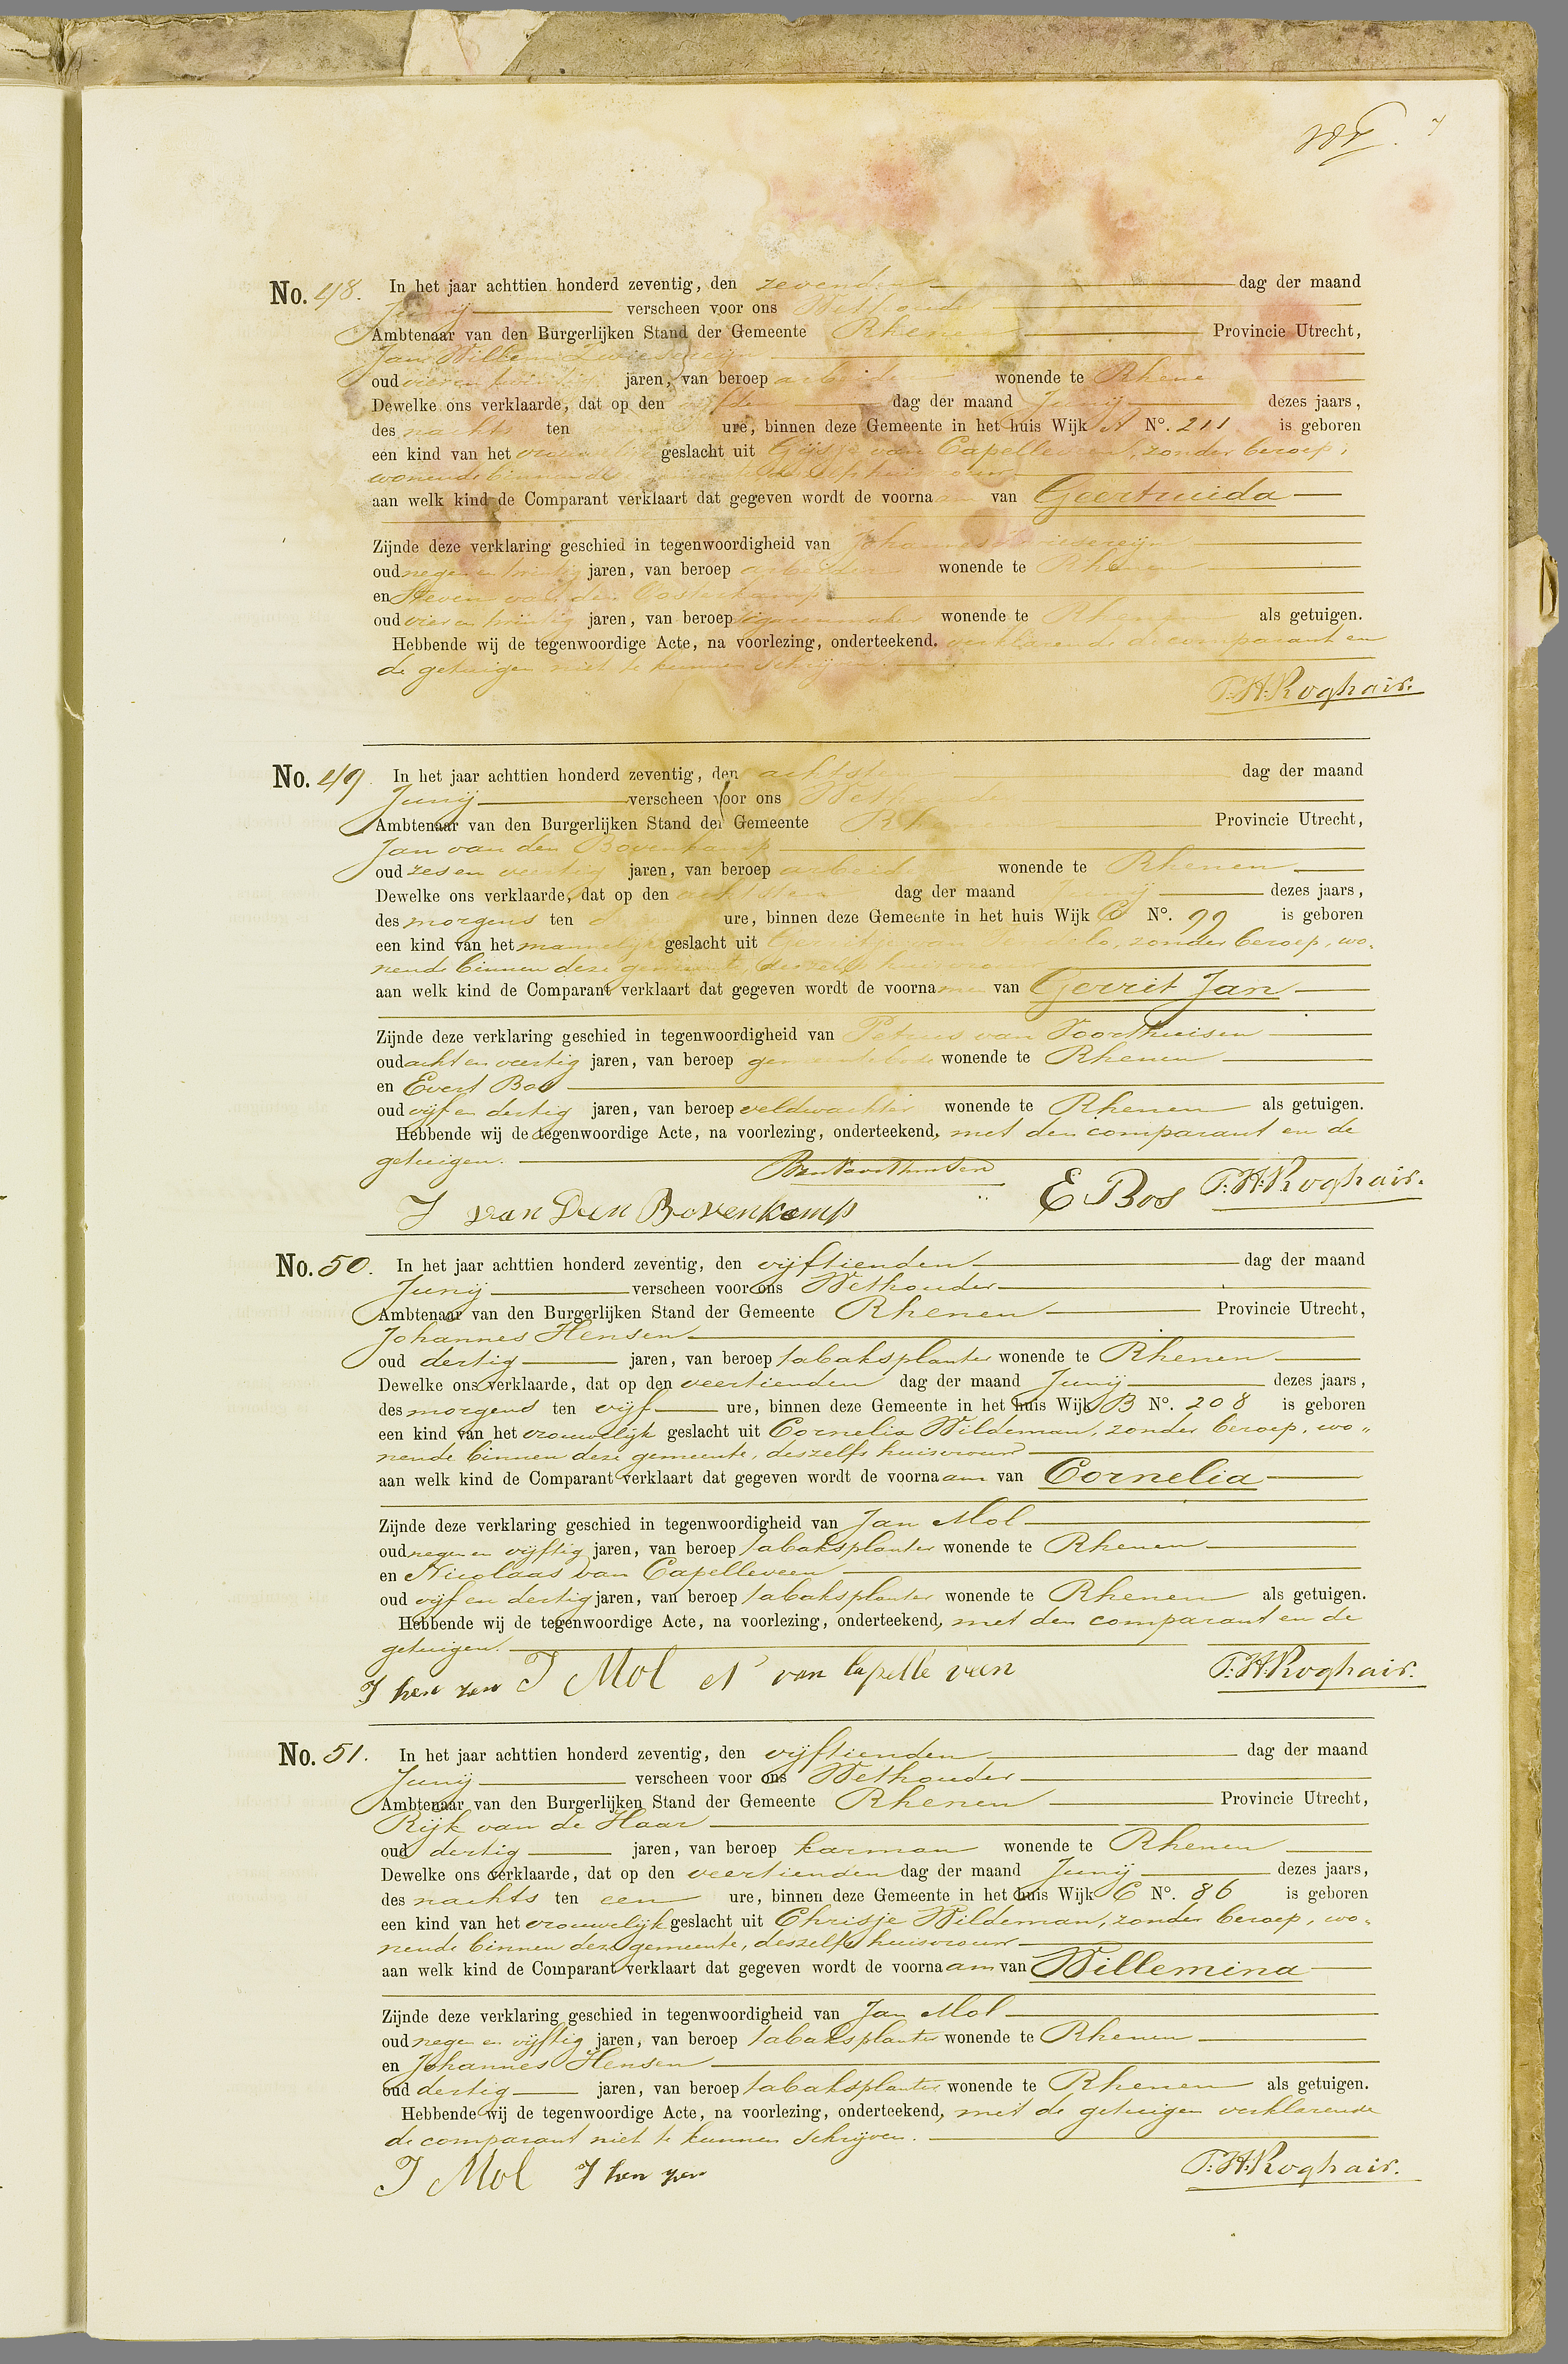 No. 48. In het jaar achttien honderd zeventig, den zevenden dag der maand
Junij verscheen voor ons Wethouder
Ambtenaar van den Burgerlijken Stand der Gemeente Rhenen Provincie Utrecht,
Jan Willem
oud vier en twintig jaren, van beroep arbeider wonende te Rhenen
Dewelke ons verklaarde, dat op den dag der maand Junij dezes jaars,
des nachts ten ure, binnen deze Gemeente in het huis Wijk A No. 211 is geboren
een kind van het vrouwelijk geslacht uit Gijsje van Capelleveen, zonder beroep,
wonende binnen deze gemeente, deszelfs huisvrouw
aan welk kind de Comparant verklaart dat gegeven wordt de voornaam van Geertruida
Zijnde deze verklaring geschied in tegenwoordigheid van Johannes
oud negen en twintig jaren, van beroep arbeider wonende te Rhenen
en Steven van den Oosterkamp
oud vier en twintig jaren, van beroep sigarenmaker wonende te Rhenen als getuigen.
Hebbende wij de tegenwoordige Acte, na voorlezing, onderteekend, verklarende de comparant en
de getuigen niet te kunnen schrijven.
P.H. Roghair.
No. 49. In het jaar achttien honderd zeventig, den achtsten dag der maand
Junij verscheen voor ons Wethouder
Ambtenaar van den Burgerlijken Stand der Gemeente Rhenen Provincie Utrecht,
Jan van den Bovenkamp
oud zes en veertig jaren, van beroep arbeider wonende te Rhenen
Dewelke ons verklaarde, dat op den achtsten dag der maand Junij dezes jaars,
des morgens ten ure, binnen deze Gemeente in het huis Wijk C No. 99 is geboren
een kind van het mannelijk geslacht uit Gerritje van zonder beroep, wo-
nende binnen deze gemeente, deszelfs huisvrouw
aan welk kind de Comparant verklaart dat gegeven wordt de voornamen van Gerrit Jan
Zijnde deze verklaring geschied in tegenwoordigheid van Petrus van Voorthuisen
oud acht en veertig jaren, van beroep gemeentebode wonende te Rhenen
en Evert Bos
oud vijf en dertig jaren, van beroep veldwachter wonende te Rhenen als getuigen.
Hebbende wij de tegenwoordige Acte, na voorlezing, onderteekend, met den comparant en de
getuigen.
J van Den Bovenkamp E Bos P.H. Roghair.
No. 50. In het jaar achttien honderd zeventig, den vijftienden dag der maand
Junij verscheen voor ons Wethouder
Ambtenaar van den Burgerlijken Stand der Gemeente Rhenen Provincie Utrecht,
Johannes Hensen
oud dertig jaren, van beroep tabaksplanter wonende te Rhenen
Dewelke ons verklaarde, dat op den veertienden dag der maand Junij dezes jaars,
des morgens ten vijf ure, binnen deze Gemeente in het huis Wijk B No. 208 is geboren
een kind van het vrouwelijk geslacht uit Cornelia Wildeman, zonder beroep, wo-
nende binnen deze gemeente, deszelfs huisvrouw
aan welk kind de Comparant verklaart dat gegeven wordt de voornaam van Cornelia
Zijnde deze verklaring geschied in tegenwoordigheid van Jan Mol
oud negen en vijftig jaren, van beroep tabaksplanter wonende te Rhenen
en Nicolaas van Capelleveen
oud vijf en dertig jaren, van beroep tabaksplanter wonende te Rhenen als getuigen.
Hebbende wij de tegenwoordige Acte, na voorlezing, onderteekend, met den comparant en de
getuigen.
J hen zen J Mol N van Capelle veen P.H. Roghair.
No. 51. In het jaar achttien honderd zeventig, den vijftienden dag der maand
Junij verscheen voor ons Wethouder
Ambtenaar van den Burgerlijken Stand der Gemeente Rhenen Provincie Utrecht,
Rijk van de Haar
oud dertig jaren, van beroep karman wonende te Rhenen
Dewelke ons verklaarde, dat op den veertienden dag der maand Junij dezes jaars,
des nachts ten een ure, binnen deze Gemeente in het huis Wijk C No. 86 is geboren
een kind van het vrouwelijk geslacht uit Chrisje Wildeman, zonder beroep, wo-
nende binnen deze gemeente, deszelfs huisvrouw
aan welk kind de Comparant verklaart dat gegeven wordt de voornaam van Willemina
Zijnde deze verklaring geschied in tegenwoordigheid van Jan Mol
oud negen en vijftig jaren, van beroep tabaksplanter wonende te Rhenen
en Johannes Hensen
oud dertig jaren, van beroep tabaksplanter wonende te Rhenen als getuigen.
Hebbende wij de tegenwoordige Acte, na voorlezing, onderteekend, met de getuigen verklarende
de comparant niet te kunnen schrijven.
J Mol J hen zen P.H. Roghair.